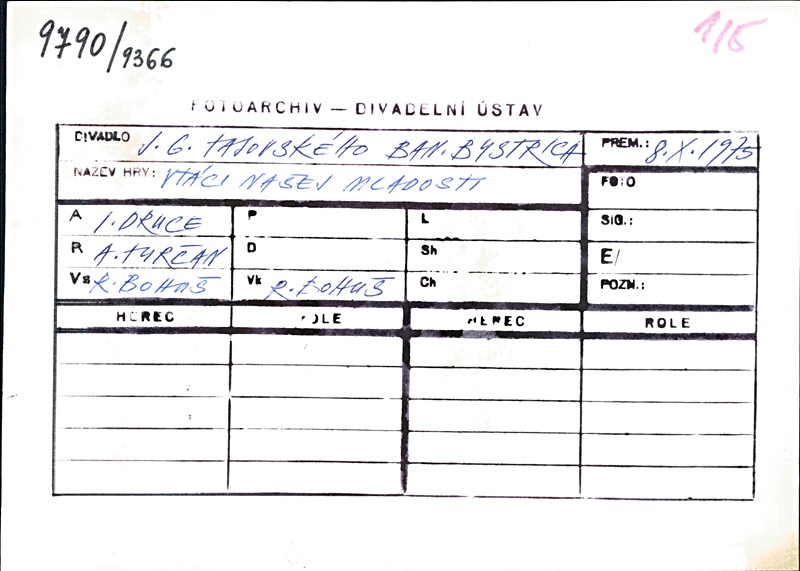 9790/9366
1/5
FOTOARCHIV — DIVADELNÍ ÚSTAV
DIVADLO J. G. TAJOVSKÉHO BAN. BYSTRICA PREM.: 8. X. 1975
NAZEV HRY: VTÁCI NAŠEJ MLADOSTI FOTO
A I. DRUCE P L SIG.:
R A. TURČAN D Sh E/
Vs R. BOHUŠ Vk R. BOHUŠ Ch POZN.:
HEREC ROLE HEREC ROLE